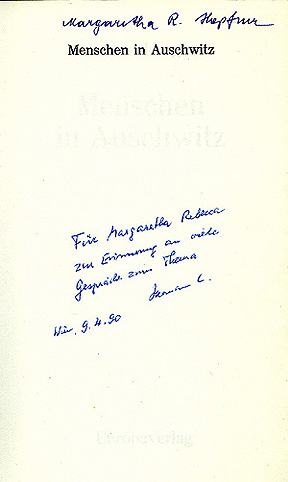 Margaretha R. Hopfner
Menschen in Auschwitz
Menschen
in Auschwitz
Für Margaretha Rebecca
zur Erinnerung an viele
Gespräche zum Thema
Hermann L.
Wien, 9.4.90
Europaverlag